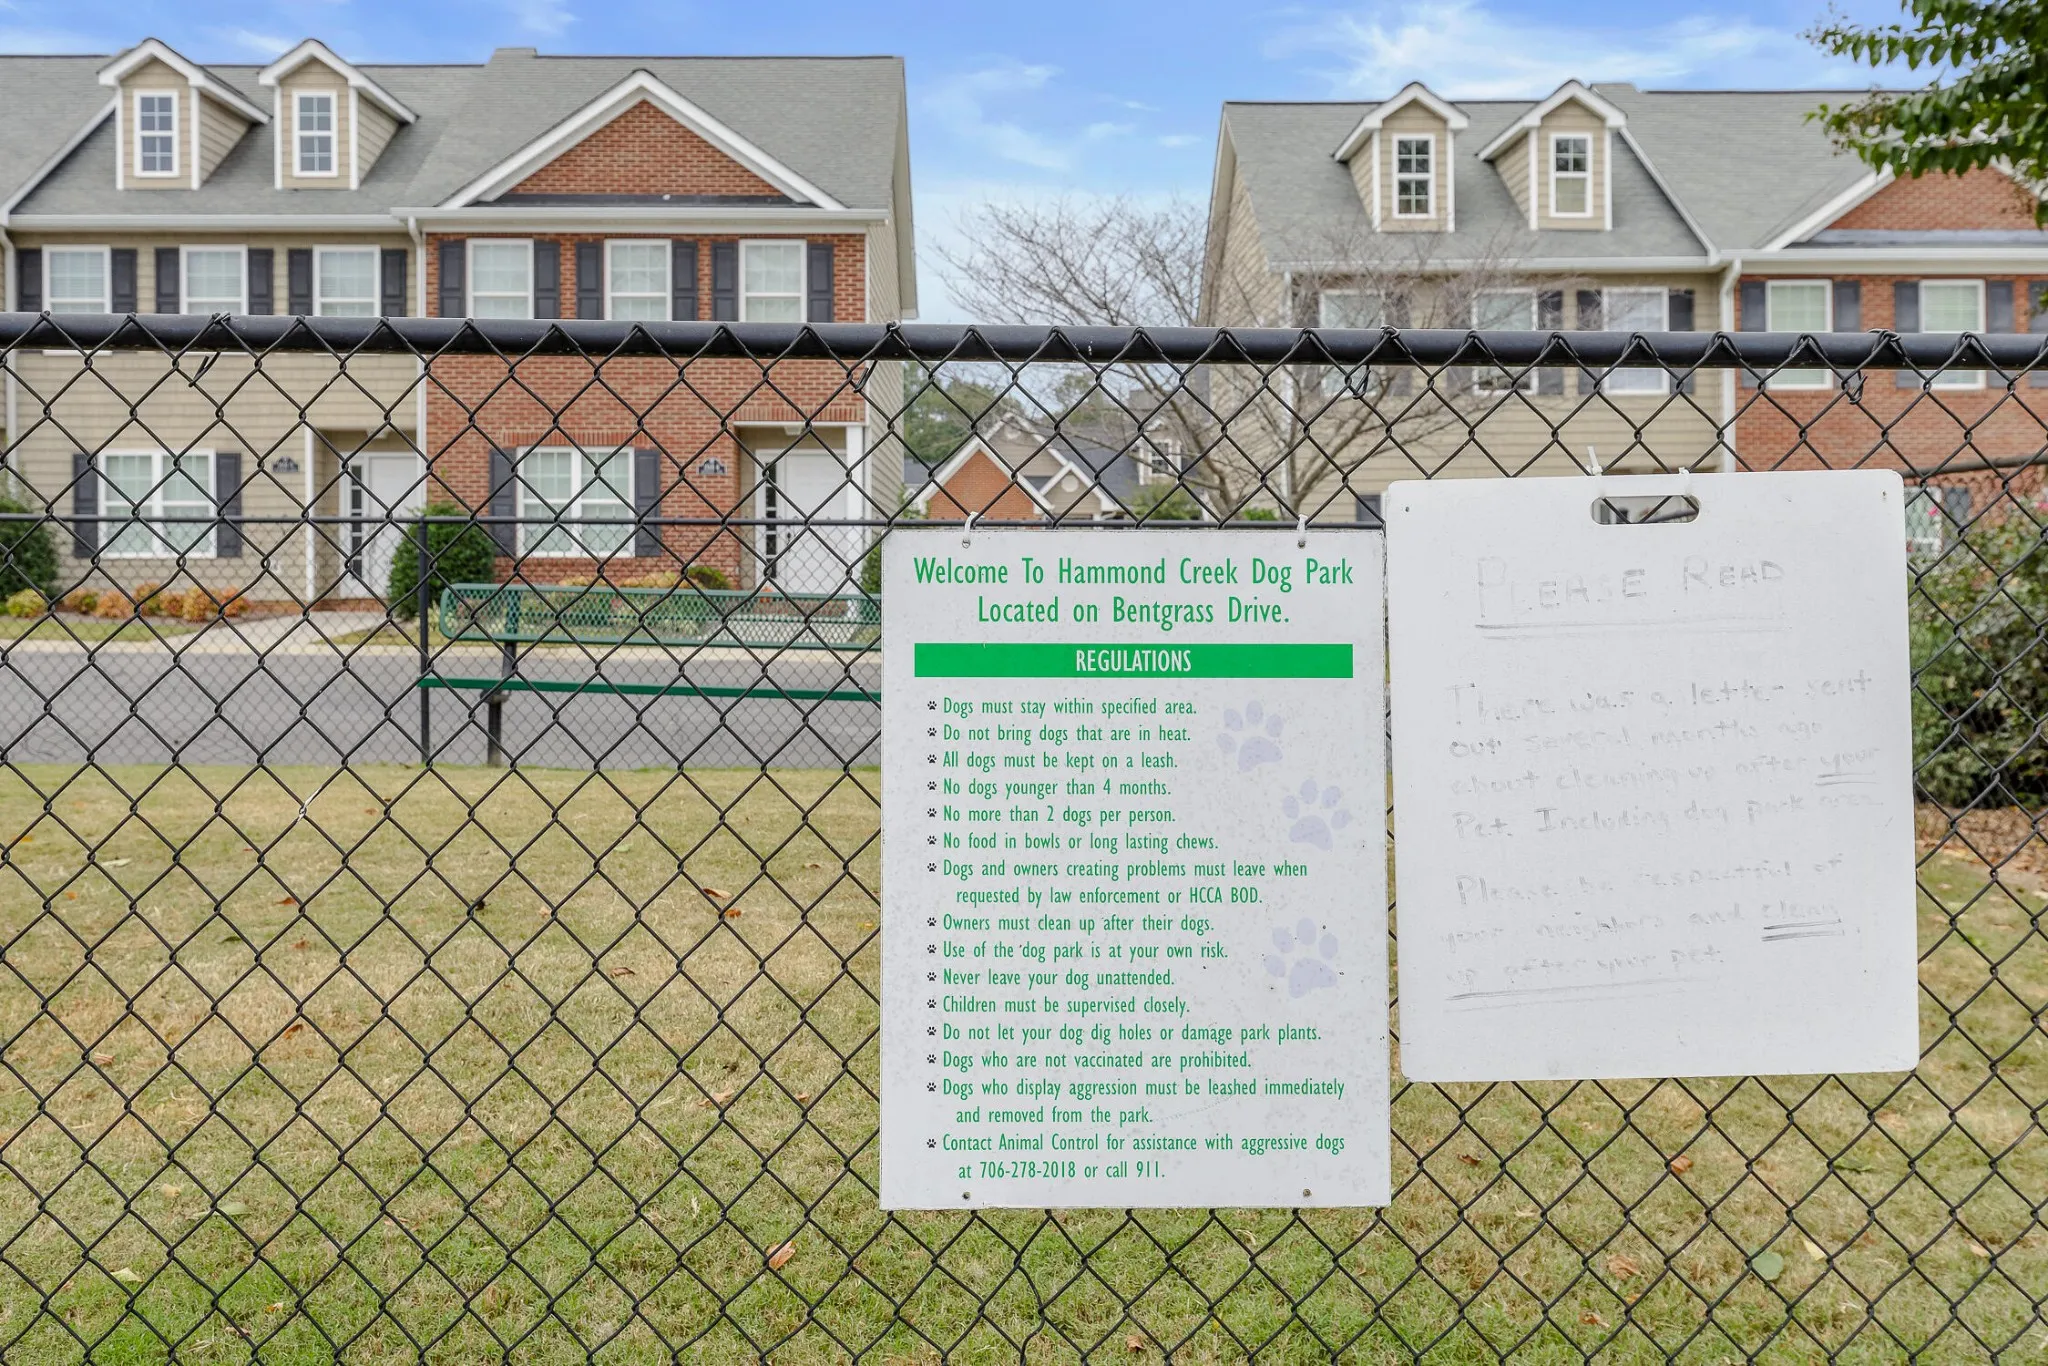 Welcome To Hammond Creek Dog Park
Located on Bentgrass Drive.
REGULATIONS
Dogs must stay within specified area.
Do not bring dogs that are in heat.
All dogs must be kept on a leash.
No dogs younger than 4 months.
No more than 2 dogs per person.
No food in bowls or long lasting chews.
Dogs and owners creating problems must leave when
requested by law enforcement or HCCA BOD.
Owners must clean up after their dogs.
Use of the dog park is at your own risk.
Never leave your dog unattended.
Children must be supervised closely.
Do not let your dog dig holes or damage park plants.
Dogs who are not vaccinated are prohibited.
Dogs who display aggression must be leashed immediately
and removed from the park.
Contact Animal Control for assistance with aggressive dogs
at 706-278-2018 or call 911.
PLEASE READ
There was a letter sent
out several months ago
about cleaning up after your
Pet. Including dog park area
Please be respectful of
your neighbors and clean
up after your pet.